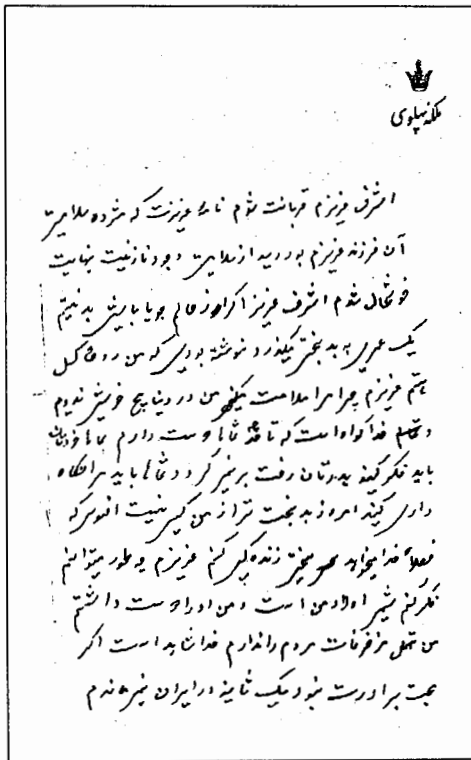 ملکه پهلوی
اشرف عزیزم قربانت شوم نامه عزیزت که مژده سلامتی
آن فرزند عزیزم بود رسید از سلامتی وجود نازنینت نهایت
خوشحال شدم اشرف عزیز اگر از حالم جویا باشی بد نیستم
یک عمری به بدبختی میگذرد نوشته بودی که من
هستم عزیزم چرا مرا ملامت میکنی من در دنیا هیچ خوشی ندیدم
و خدا گواه است که تا چه شما را دوست دارم شما خودتان
باید فکر کنید پدرتان رفت برنمیگردد شما باید مرا نگاه
داری کنید امروز بدبخت تر از من کسی نیست افسوس که
فعلاً خدا میخواهد به سختی زندگی کنم عزیزم چطور میتوانم
فکر کنم اولاد من است و من او را دوست داشتم
من تحمل مزخرفات مردم را ندارم خدا شاهد است اگر
محبت برادرت نبود یک ثانیه در ایران نمیماندم